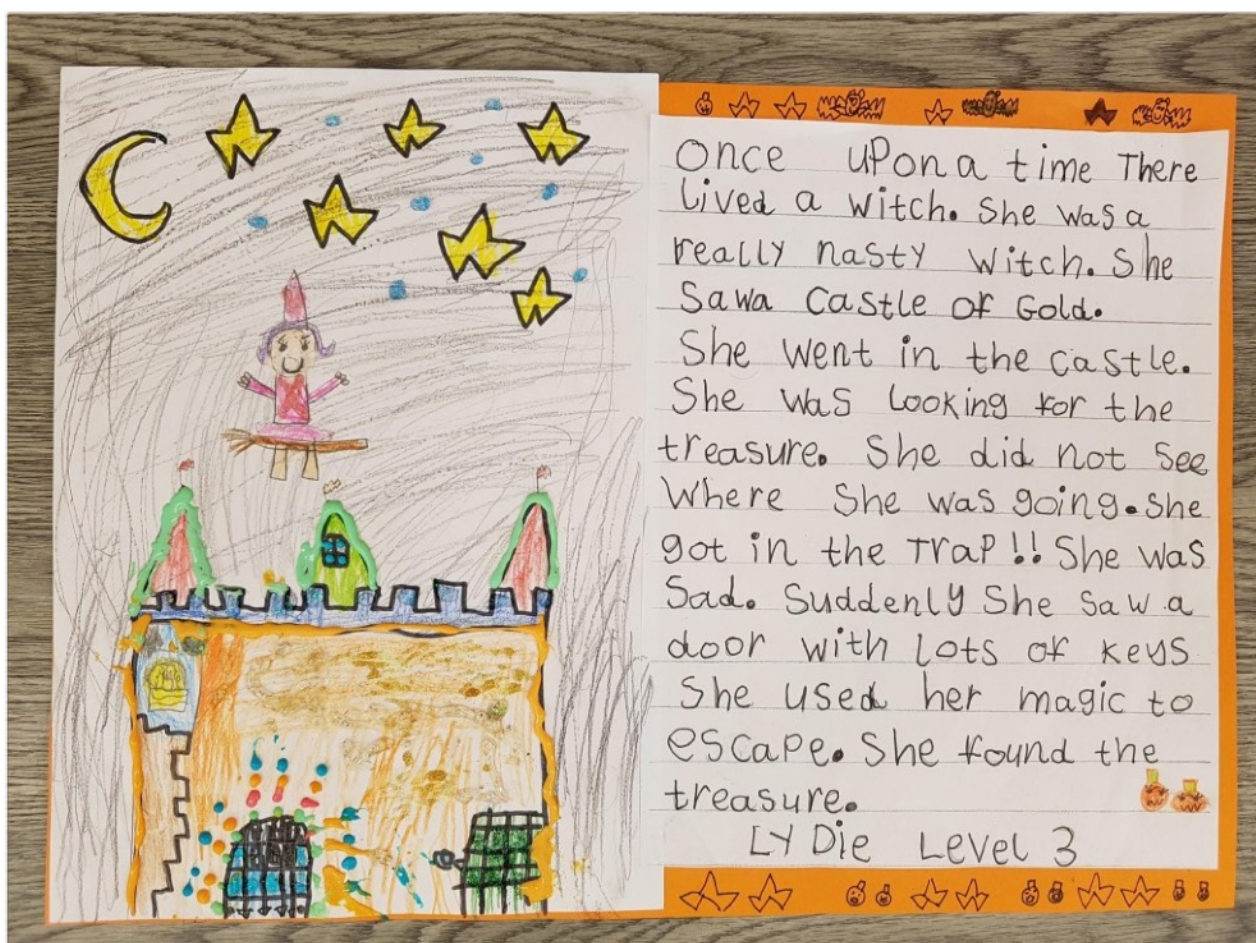 Once upon a time There
Lived a witch. She was a
really nasty witch. She
Saw a castle of Gold.
She went in the castle.
She was Looking for the
treasure. She did not see
where she was going. She
got in the TraP!! She was
Sad. Suddenly She saw a
door with lots of keys
She used her magic to
escape. She found the
treasure.
LYDie Level 3